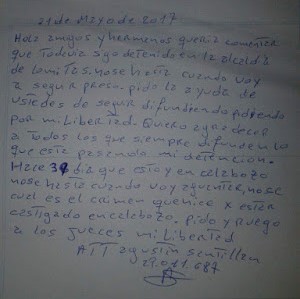 21 de Mayo de 2017
Hola amigos y hermanos queria comentar
que todavia sigo detenido en la alcaldia
de lomitas. nose hasta cuando voy
a seguir preso. pido la ayuda de
ustedes de seguir difundiendo pidiendo
por mi libertad. Quiero agradecer
a todos los que siempre difunden lo
que esta pasando mi detencion.
Hace dia que estoy en calabozo
nose hasta cuando voy aguantar, nose
cual es el crimen que hice x estar
castigado en calabozo. pido y ruego
a los jueces mi libertad
ATT agustin santillan
29.071.687